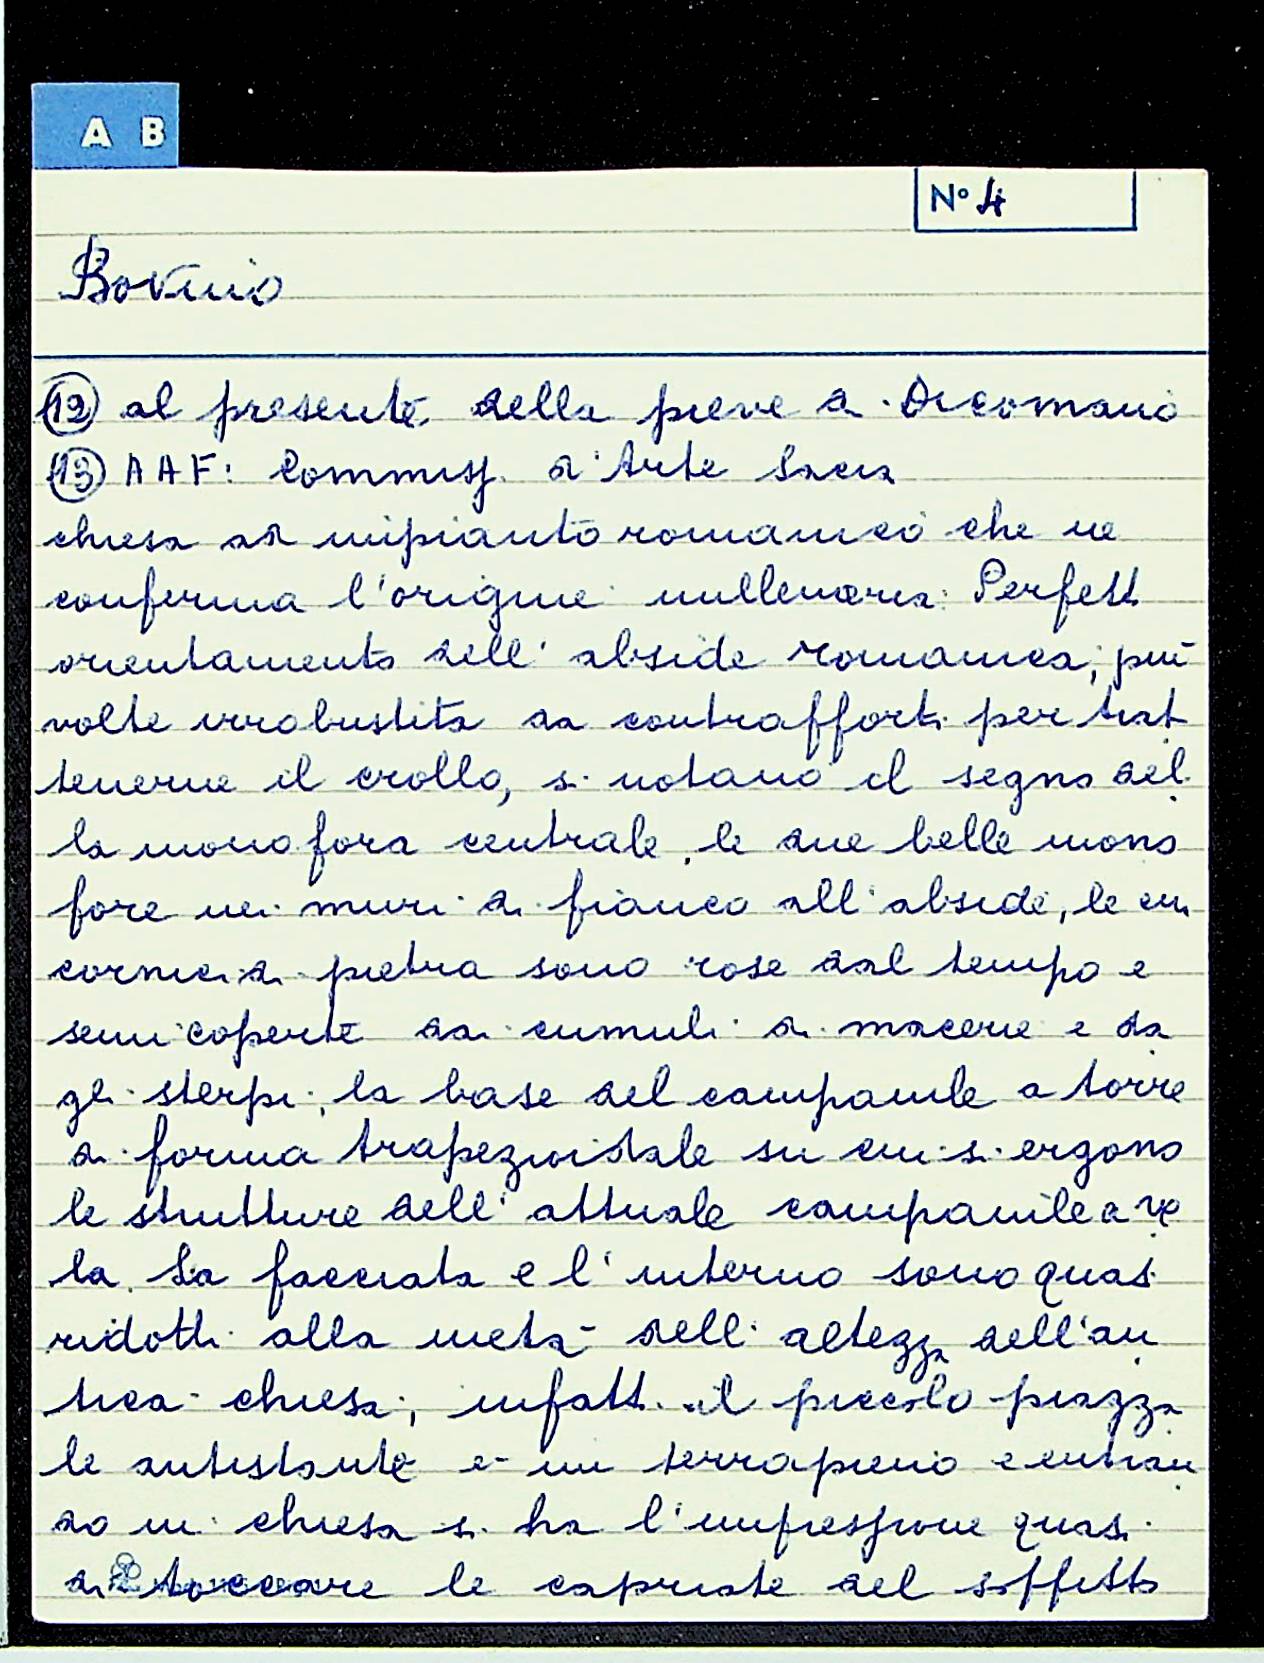 A B
N° 4
Bovino
(12) al presente della pieve a Dicomano
(13) AAF: Commiss. d'Arte Sacra
chiesa di impianto romanico che ne
conferma l'origine millenaria. Perfett
orientamento dell'abside romanica, più
volte irrobustita da contrafforti per trat
tenerne il crollo, si notano il segno del
la monofora centrale, le due belle mono
fore nei muri di fianco all'abside, le cui
cornici di pietra sono rose dal tempo e
semicoperte da cumuli di macerie e da
gli sterpi; la base del campanile a torre
di forma trapezoidale su cui si ergono
le strutture dell'attuale campanile a ve
la. La facciata e l'interno sono quasi
ridotti alla metà dell'altezza dell'an
tica chiesa; infatti il piccolo piazza
le antistante è un terrapieno e entran
do in chiesa si ha l'impressione quasi
di toccare le capriate del soffitto